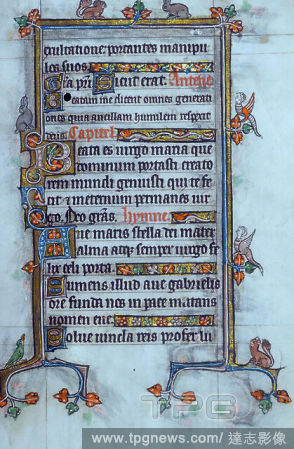 exultatione: portantes manipu
los suos.
Gla pri. Sicut erat. Antepho
Beatam me dicent omnes generati
ones quia ancillam humilem respexit
deus. Capitel.
Beata es uirgo maria que
dominum portasti creato
rem mundi genuisti qui te fe
cit et in eternum permanes uir
go. Deo gras. Hymne.
Aue maris stella dei mater
alma atq; semper uirgo fe
lix celi porta.
Sumens illud aue gabrielis
ore funda nos in pace mutans
nomen eue.
Solue uincla reis profer lu
TPG
www.tpgnews.com/ 達志影像